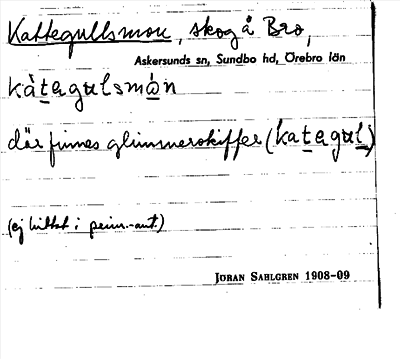 Kattegullsmon, skog å Bro,
Askersunds sn, Sundbo hd, Örebro län
kàtegulsmón
där finnes glimmerskiffer (kategul)
(ej hittat i prim.-ant.)
JÖRAN SAHLGREN 1908-09